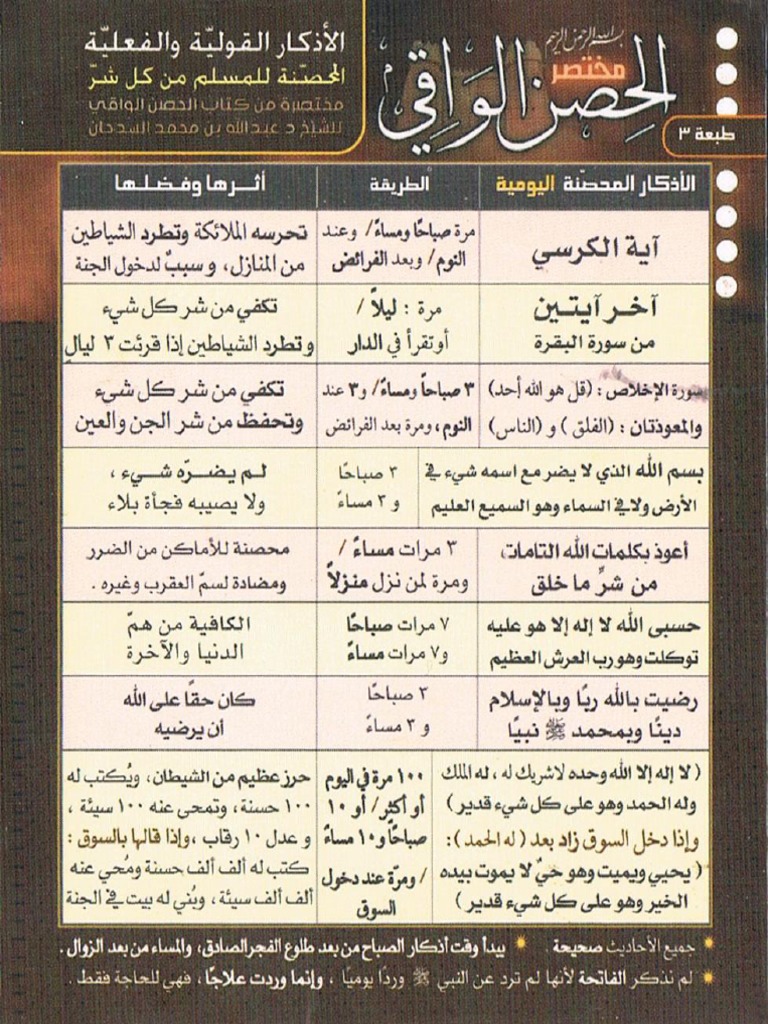 بسم الله الرحمن الرحيم
مختصر
الحصن الواقي
طبعة ٣
الأذكار القوليّة والفعليّة
المحصّنة للمسلم من كل شرّ
مختصرة من كتاب الحصن الواقي
للشيخ د عبدالله بن محمد السدحان
الأذكار المحصّنة اليومية	الطريقة	أثرها وفضلها
آية الكرسي
مرة صباحًا ومساءً / وعند
النوم / وبعد الفرائض
تحرسه الملائكة وتطرد الشياطين
من المنازل، وسببٌ لدخول الجنة
آخر آيتين
من سورة البقرة
مرة : ليلاً /
أو تقرأ في الدار
تكفي من شر كل شيء
وتطرد الشياطين إذا قرئت ٣ ليالٍ
سورة الإخلاص : (قل هو الله أحد)
والمعوذتان : (الفلق) و (الناس)
٣ صباحاً ومساءً / و٣ عند
النوم، ومرة بعد الفرائض
تكفي من شر كل شيء
وتحفظ من شر الجن والعين
بسم الله الذي لا يضر مع اسمه شيء في
الأرض ولا في السماء وهو السميع العليم
٣ صباحًا
و ٣ مساءً
لم يضرّه شيء ،
ولا يصيبه فجأة بلاء
أعوذ بكلمات الله التامات
من شرِّ ما خلق
٣ مرات مساءً /
ومرة لمن نزل منزلاً
محصنة للأماكن من الضرر
ومضادة لسمّ العقرب وغيره .
حسبي الله لا إله إلا هو عليه
توكلت وهو رب العرش العظيم
٧ مرات صباحًا
و٧ مرات مساءً
الكافية من همّ
الدنيا والآخرة
رضيت بالله ربًا وبالإسلام
دينًا وبمحمد ﷺ نبيًا
٣ صباحًا
و ٣ مساءً
كان حقًا على الله
أن يرضيه
( لا إله إلا الله وحده لا شريك له ، له الملك
وله الحمد وهو على كل شيء قدير )
وإذا دخل السوق زاد بعد ( له الحمد ):
( يحيي ويميت وهو حيٌ لا يموت بيده
الخير وهو على كل شيء قدير )
١٠٠ مرة في اليوم
أو أكثر / أو ١٠
صباحًا و١٠ مساءً
/ ومرّة عند دخول
السوق
حرز عظيم من الشيطان، ويُكتب له
١٠٠ حسنة، وتمحى عنه ١٠٠ سيئة ،
و عدل ١٠ رقاب ، وإذا قالها بالسوق :
كتب له ألف ألف حسنة ومُحي عنه
ألف ألف سيئة ، وبُني له بيت في الجنة
جميع الأحاديث صحيحة . يبدأ وقت أذكار الصباح من بعد طلوع الفجر الصادق، والمساء من بعد الزوال .
لم نذكر الفاتحة لأنها لم ترد عن النبي ﷺ وردًا يوميًا ، وإنما وردت علاجًا، فهي للحاجة فقط .